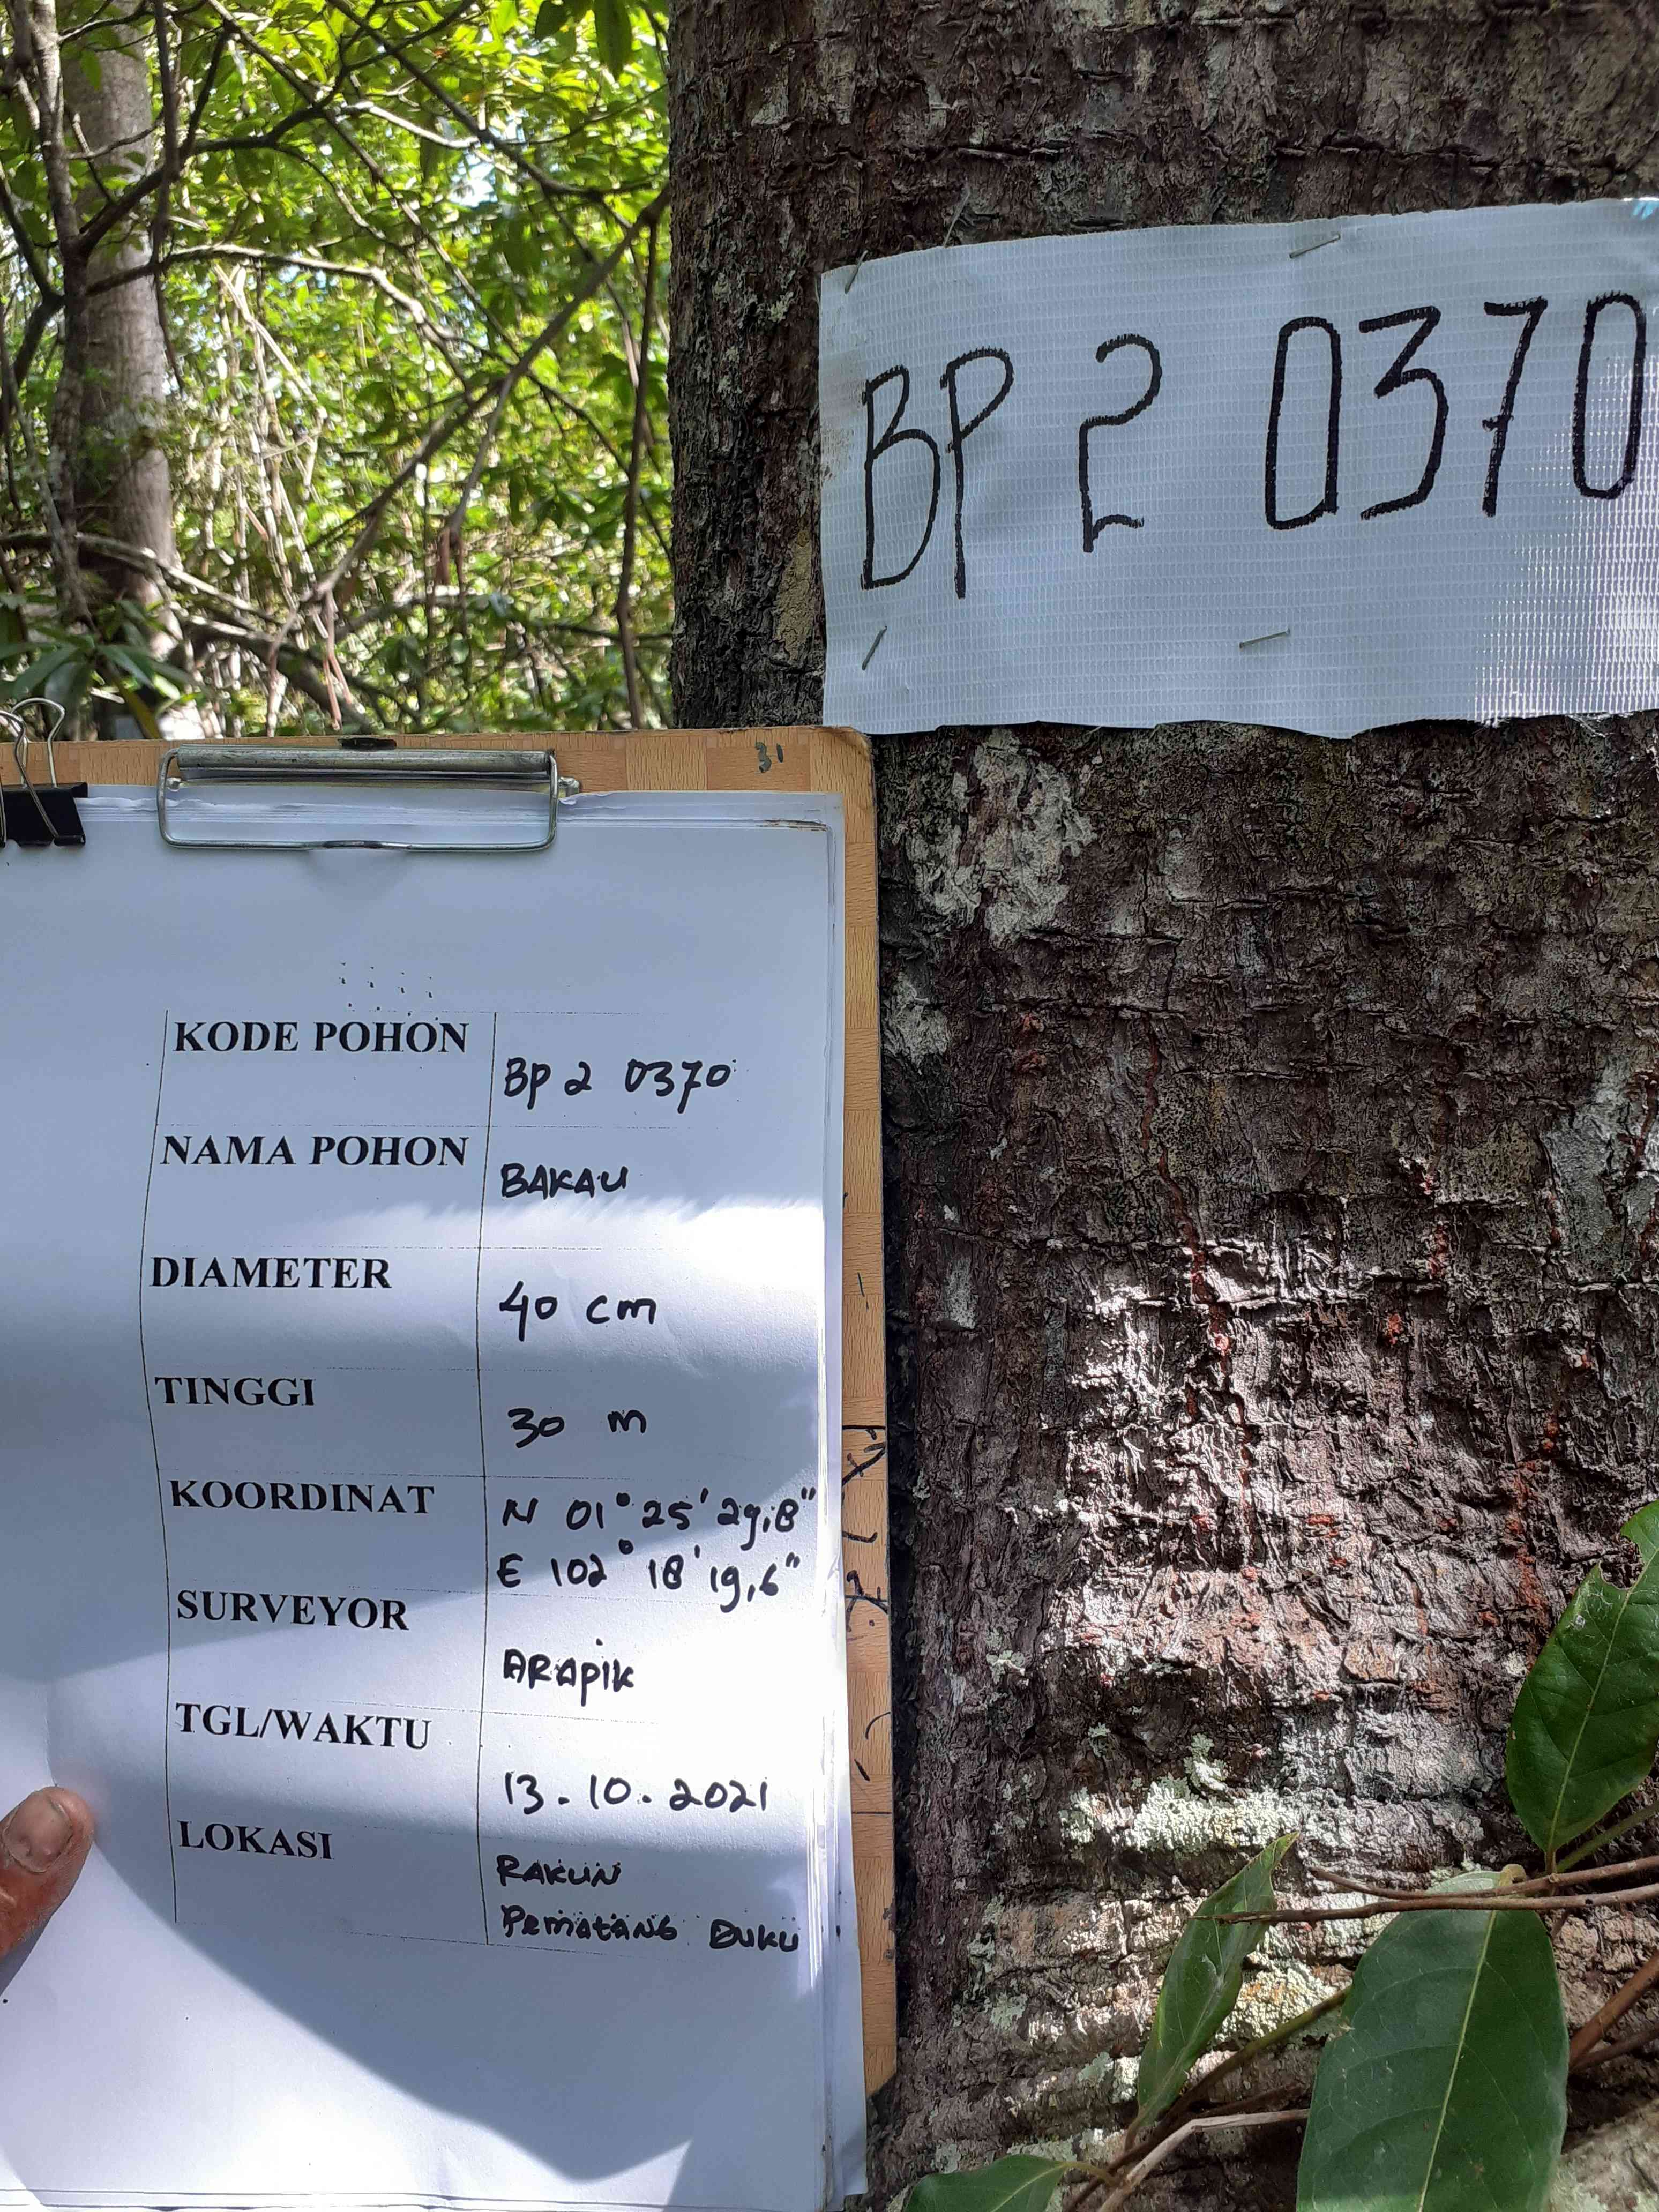 BP 2 0370
31
KODE POHON
BP 2 0370
NAMA POHON
BAKAU
DIAMETER
40 cm
TINGGI
30 m
KOORDINAT
N 01° 25' 29,8"
E 102° 18' 19,6"
SURVEYOR
ARAPIK
TGL/WAKTU
13.10.2021
LOKASI
RAKUN
PEMATANG DUKU